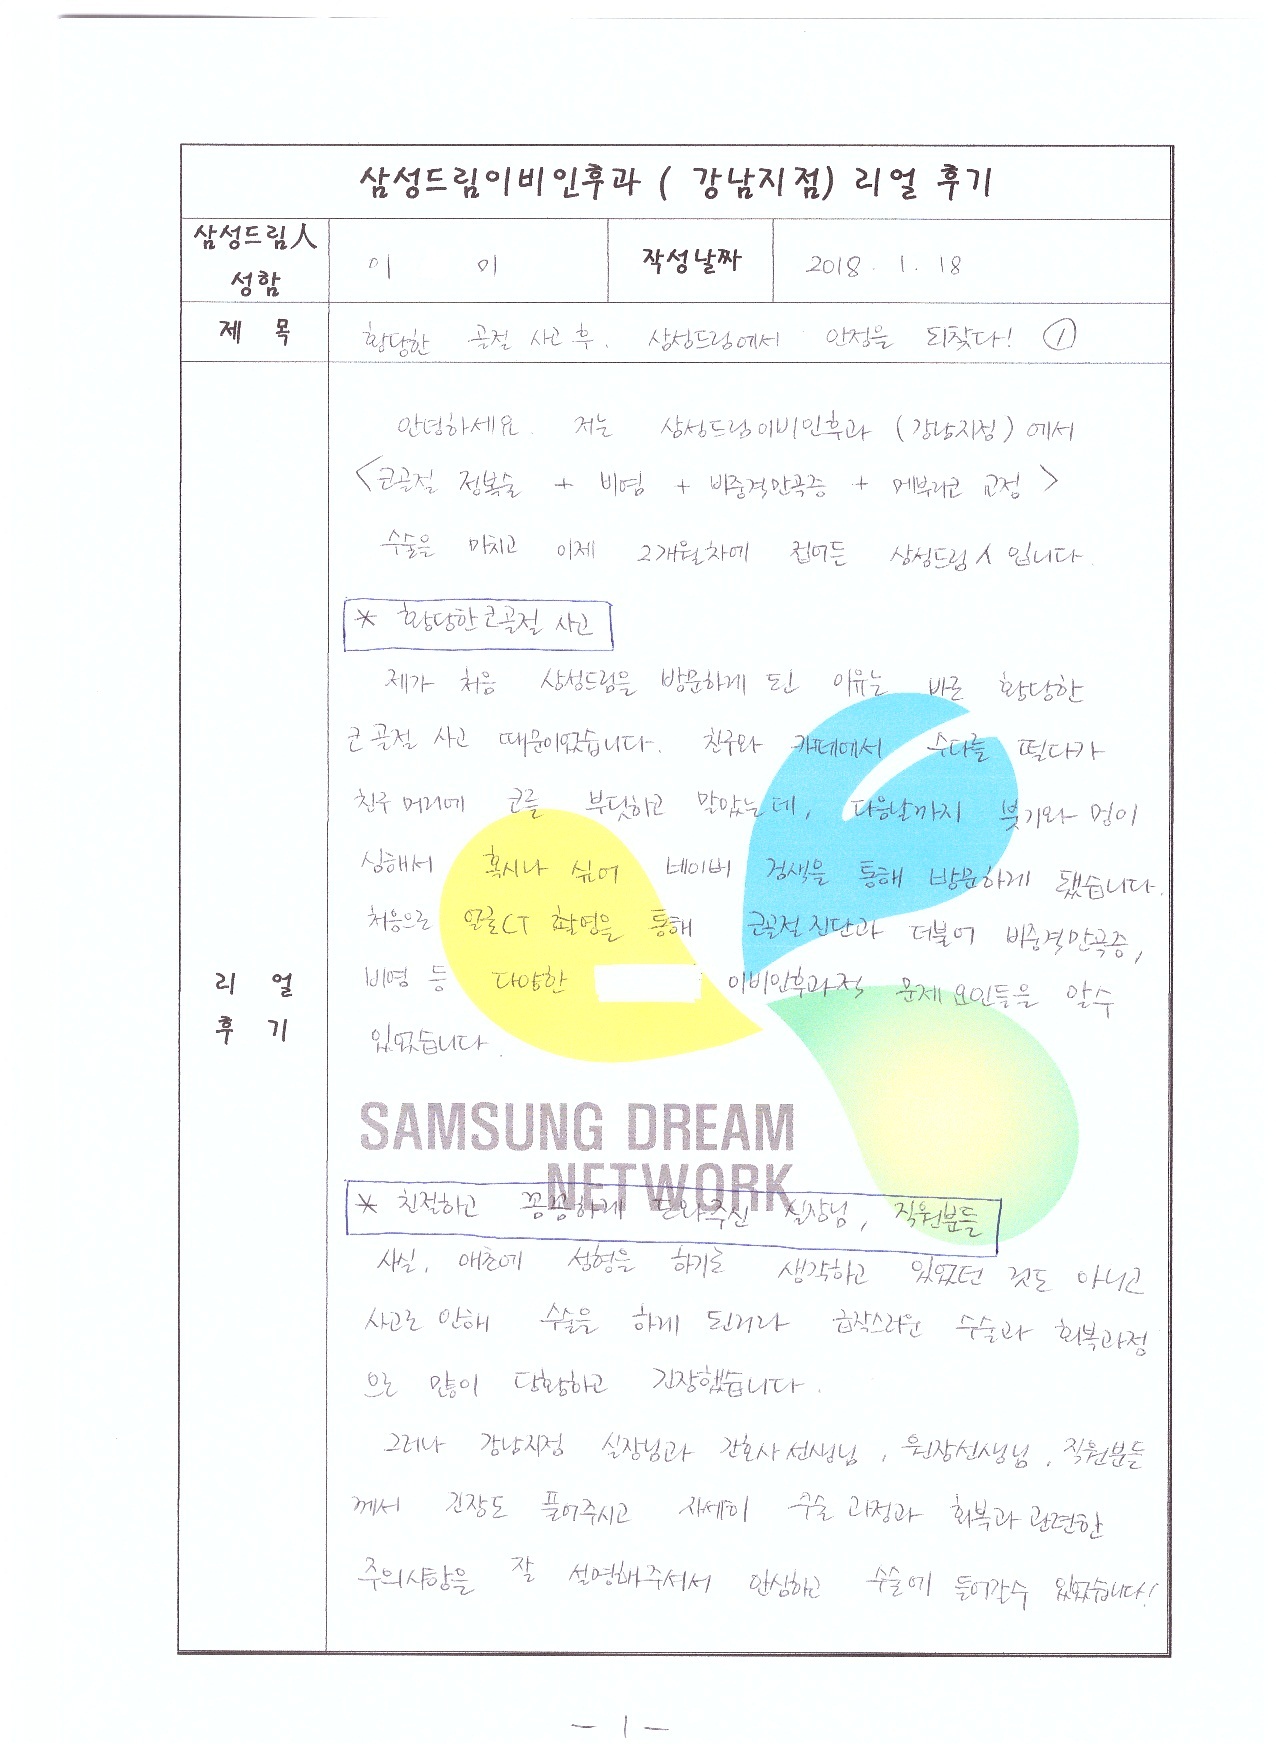 삼성드림이비인후과 ( 강남지점) 리얼 후기
삼성드림人 성함
이 이
작성날짜
2018. 1. 18
제 목
황당한 골절 사고 후, 삼성드림에서 안정을 되찾다! ①
리 얼
후 기
안녕하세요. 저는 삼성드림이비인후과 (강남지점) 에서
<코골절 정복술 + 비염 + 비중격만곡증 + 메부리코 교정>
수술을 마치고 이제 2개월차에 접어든 삼성드림人 입니다.
* 황당한 코골절 사고
제가 처음 삼성드림을 방문하게 된 이유는 바로 황당한
코골절 사고 때문이었습니다. 친구와 카페에서 수다를 떨다가
친구 머리에 코를 부딪하고 말았는데, 다음날까지 붓기와 멍이
심해서 혹시나 싶어 네이버 검색을 통해 방문하게 됐습니다.
처음으로 얼굴CT 촬영을 통해 코골절 진단과 더불어 비중격만곡증,
비염 등 다양한 이비인후과적 문제 요인들을 알수
있었습니다.
SAMSUNG DREAM
NETWORK
* 친절하고 꼼꼼하게 도와주신 실장님, 직원분들
사실, 애초에 성형을 하기로 생각하고 있었던 것도 아니고
사고로 인해 수술을 하게 된거라 급작스러운 수술과 회복과정
으로 많이 당황하고 긴장했습니다.
그러나 강남지점 실장님과 간호사 선생님, 원장선생님, 직원분들
께서 긴장도 풀어주시고 자세히 수술 과정과 회복과 관련한
주의사항을 잘 설명해주셔서 안심하고 수술에 들어갈수 있었습니다!
- 1 -